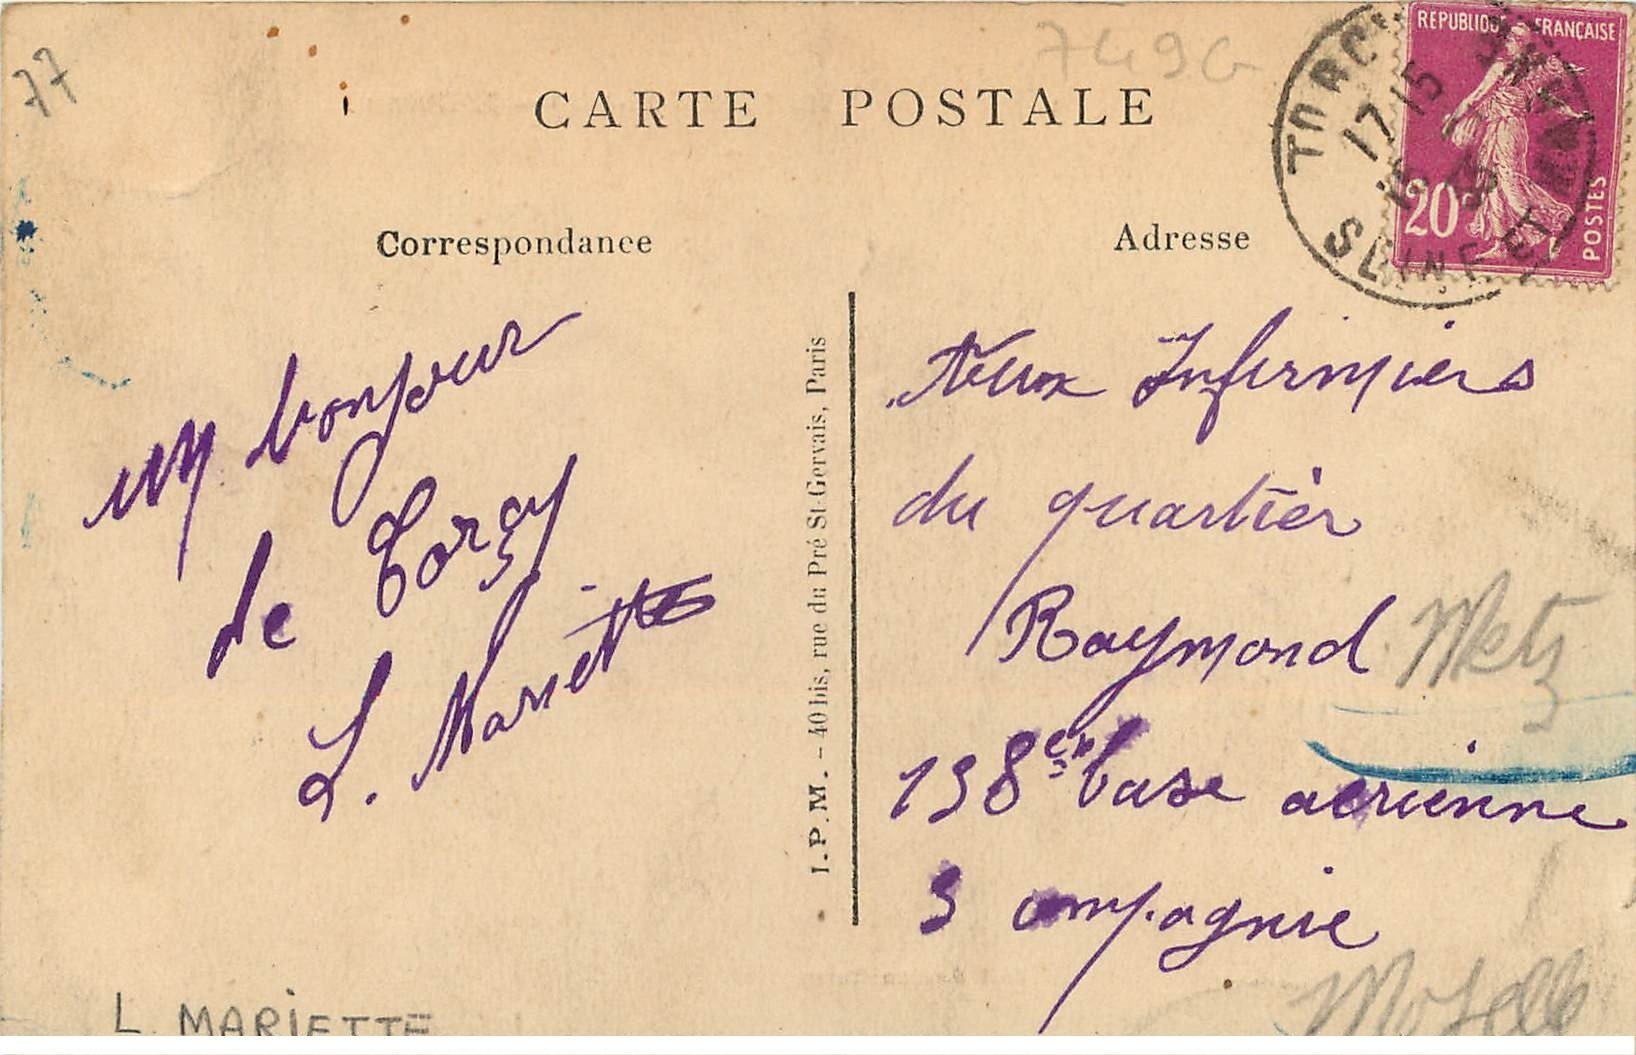 77
749G
CARTE POSTALE
REPUBLIQUE FRANÇAISE
20
POSTES
TORCY
17 15
SEINE ET MARNE
Correspondance
Adresse
un bonjour
de Torcy
L. Mariette
I.P.M. - 40 bis, rue du Pré St-Gervais, Paris
Aux Infirmiers
du quartier
Raymond
Metz
138e base aerienne
3 compagnie
Moselle
L. MARIETTE